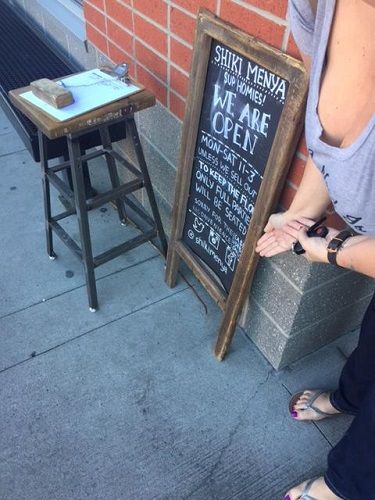 SHIKI MENYA
SUP HOMIES!
WE ARE
OPEN
MON-SAT 11-3
UNLESS WE SELL OUT
TO KEEP THE FLOW
ONLY FULL PARTIES
WILL BE SEATED
SORRY FOR THE
@shikimenya